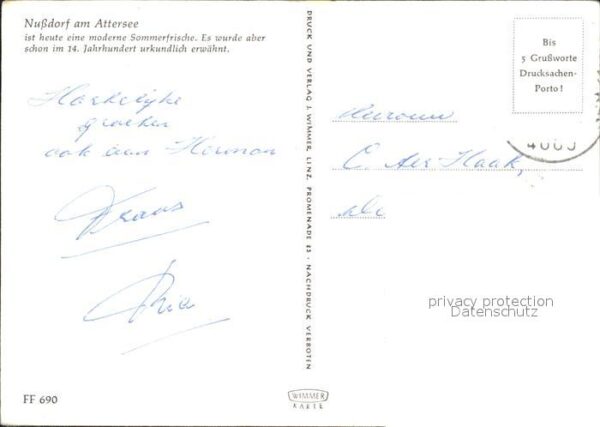 Nußdorf am Attersee
ist heute eine moderne Sommerfrische. Es wurde aber
schon im 14. Jahrhundert urkundlich erwähnt.
Hartelijke
groeten
ook aan Herman
Frans
Ria
FF 690
DRUCK UND VERLAG J. WIMMER, LINZ, PROMENADE 23 - NACHDRUCK VERBOTEN
WIMMER
KARTE
Bis
5 Grußworte
Drucksachen-
Porto!
Mevrouw
C. ter Haak,
privacy protection
Datenschutz